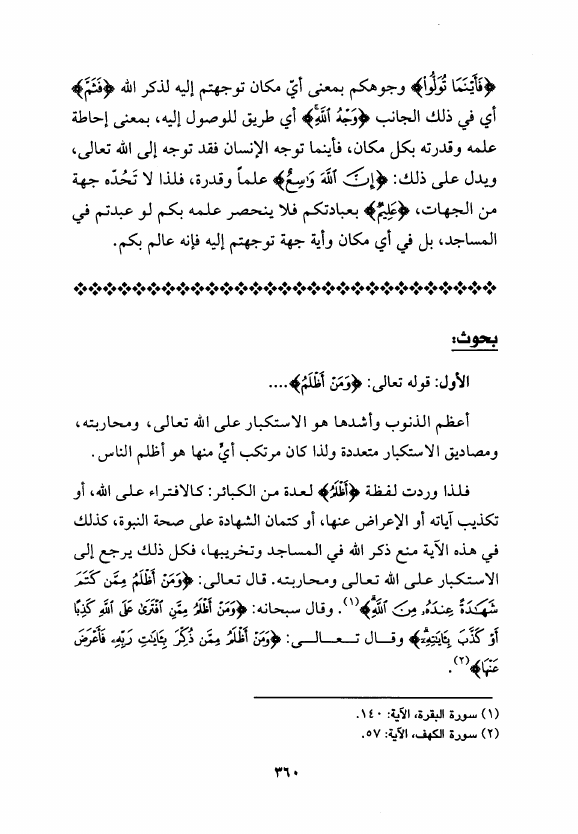 ﴿فَأَيْنَمَا تُوَلُّوا﴾ وجوهكم بمعنى أيّ مكان توجهتم إليه لذكر الله ﴿فَثَمَّ﴾
أي في ذلك الجانب ﴿وَجْهُ اللَّهِ﴾ أي طريق للوصول إليه، بمعنى إحاطة
علمه وقدرته بكل مكان، فأينما توجه الإنسان فقد توجه إلى الله تعالى،
ويدل على ذلك: ﴿إِنَّ اللَّهَ وَاسِعٌ﴾ علماً وقدرة، فلذا لا تَحُدّه جهة
من الجهات، ﴿عَلِيمٌ﴾ بعبادتكم فلا ينحصر علمه بكم لو عبدتم في
المساجد، بل في أي مكان وأية جهة توجهتم إليه فإنه عالم بكم.
بحوث:
الأول: قوله تعالى: ﴿وَمَنْ أَظْلَمُ﴾....
أعظم الذنوب وأشدها هو الاستكبار على الله تعالى، ومحاربته،
ومصاديق الاستكبار متعددة ولذا كان مرتكب أيٍّ منها هو أظلم الناس.
فلذا وردت لفظة ﴿أَظْلَمُ﴾ لعدة من الكبائر: كالافتراء على الله، أو
تكذيب آياته أو الإعراض عنها، أو كتمان الشهادة على صحة النبوة، كذلك
في هذه الآية منع ذكر الله في المساجد وتخريبها، فكل ذلك يرجع إلى
الاستكبار على الله تعالى ومحاربته. قال تعالى: ﴿وَمَنْ أَظْلَمُ مِمَّن كَتَمَ
شَهَٰدَةً عِندَهُۥ مِنَ اللَّهِ﴾(١). وقال سبحانه: ﴿وَمَنْ أَظْلَمُ مِمَّنِ افْتَرَىٰ عَلَى اللَّهِ كَذِبًا
أَوْ كَذَّبَ بِـَٔايَٰتِهِۦٓ﴾ وقال تعالى: ﴿وَمَنْ أَظْلَمُ مِمَّن ذُكِّرَ بِـَٔايَٰتِ رَبِّهِۦ فَأَعْرَضَ
عَنْهَا﴾(٢).
(١) سورة البقرة، الآية: ١٤٠.
(٢) سورة الكهف، الآية: ٥٧.
٣٦٠